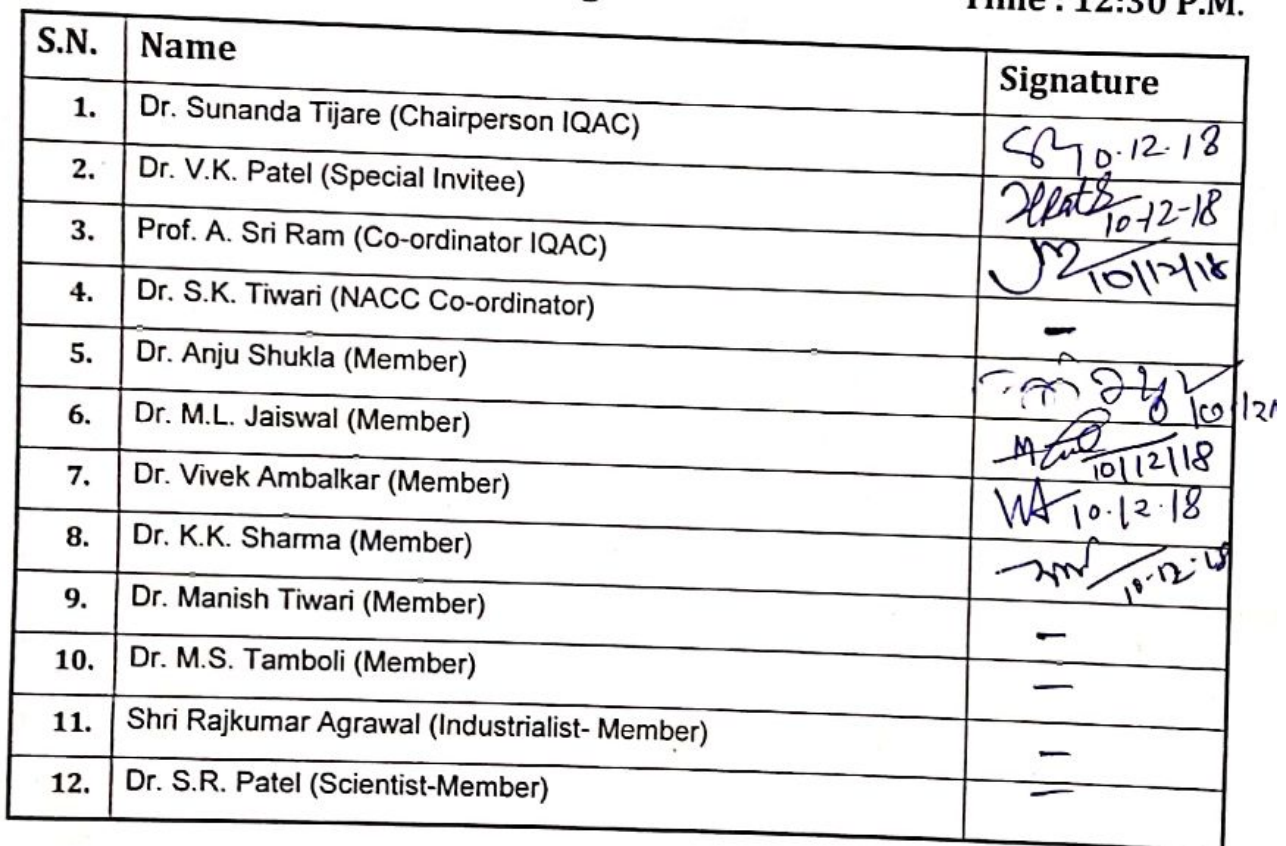 Time : 12:30 P.M.
S.N. Name Signature
1. Dr. Sunanda Tijare (Chairperson IQAC) 10.12.18
2. Dr. V.K. Patel (Special Invitee) 10-12-18
3. Prof. A. Sri Ram (Co-ordinator IQAC) 10/12/18
4. Dr. S.K. Tiwari (NACC Co-ordinator) –
5. Dr. Anju Shukla (Member)
6. Dr. M.L. Jaiswal (Member) 10/12/18
7. Dr. Vivek Ambalkar (Member) VA 10.12.18
8. Dr. K.K. Sharma (Member) 10-12-18
9. Dr. Manish Tiwari (Member) –
10. Dr. M.S. Tamboli (Member) –
11. Shri Rajkumar Agrawal (Industrialist- Member) –
12. Dr. S.R. Patel (Scientist-Member) –